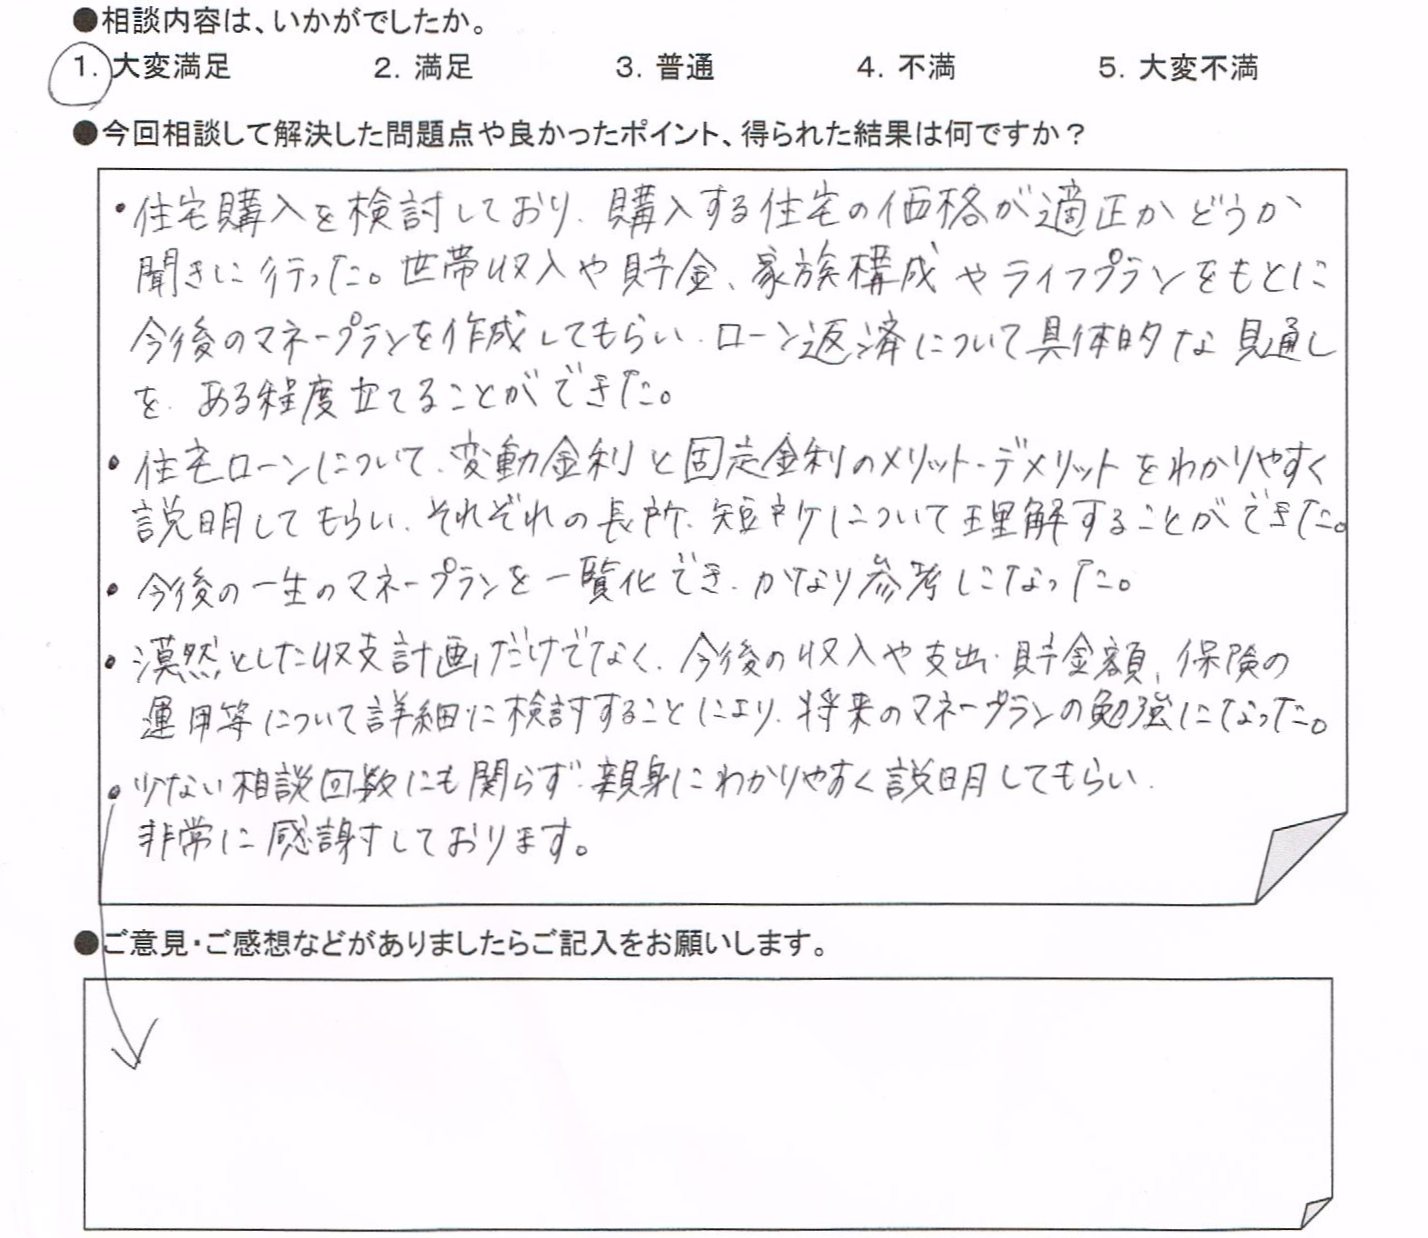 ●相談内容は、いかがでしたか。
1. 大変満足 2. 満足 3. 普通 4. 不満 5. 大変不満
●今回相談して解決した問題点や良かったポイント、得られた結果は何ですか？
・住宅購入を検討しており、購入する住宅の価格が適正かどうか
聞きに行った。世帯収入や貯金、家族構成やライフプランをもとに
今後のマネープランを作成してもらい、ローン返済について具体的な見通し
を、ある程度立てることができた。
・住宅ローンについて、変動金利と固定金利のメリット・デメリットをわかりやすく
説明してもらい、それぞれの長所、短所について理解することができた。
・今後の一生のマネープランを一覧化でき、かなり参考になった。
・漠然とした収支計画だけでなく、今後の収入や支出、貯金額、保険の
運用等について詳細に検討することにより、将来のマネープランの勉強になった。
・少ない相談回数にも関らず、親身にわかりやすく説明してもらい、
非常に感謝しております。
●ご意見・ご感想などがありましたらご記入をお願いします。